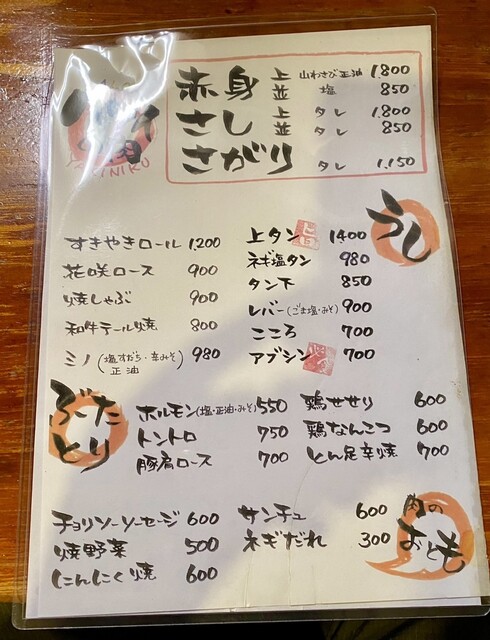 YAKINIKU
赤身 上 山わさび正油 1,800
並 塩 850
さし 上 タレ 1,800
並 タレ 850
さがり タレ 1,150
うし
すきやきロール 1,200
花咲ロース 900
焼しゃぶ 900
和牛テール焼 800
ミノ(塩すだち・辛みそ 正油) 980
上タン 1400
ネギ塩タン 980
タン下 850
レバー(ごま塩・みそ) 900
こころ 700
アブシン 700
ぶーたん
とり
ホルモン(塩・正油・みそ) 550
トントロ 750
豚肩ロース 700
鶏せせり 600
鶏なんこつ 600
とん足辛焼 700
チョリソーソーセージ 600
焼野菜 500
にんにく焼 600
サンチュ 600
ネギだれ 300
肉の
おとも